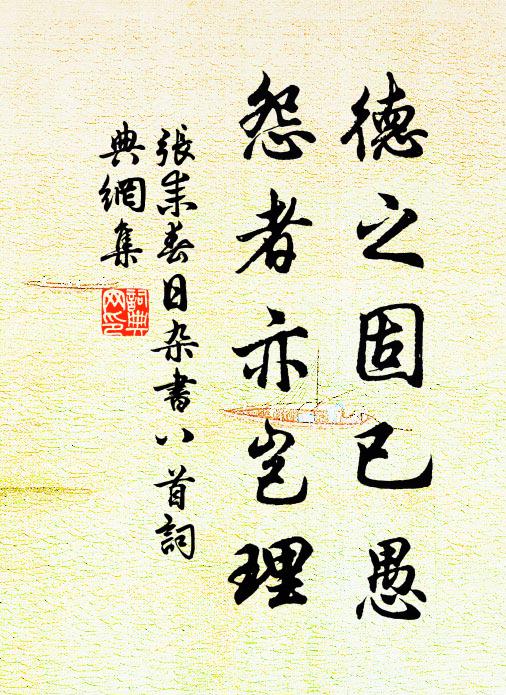 德之固已愚
怨者亦岂理
張耒春日杂書八首詞
典網集
詞典网印